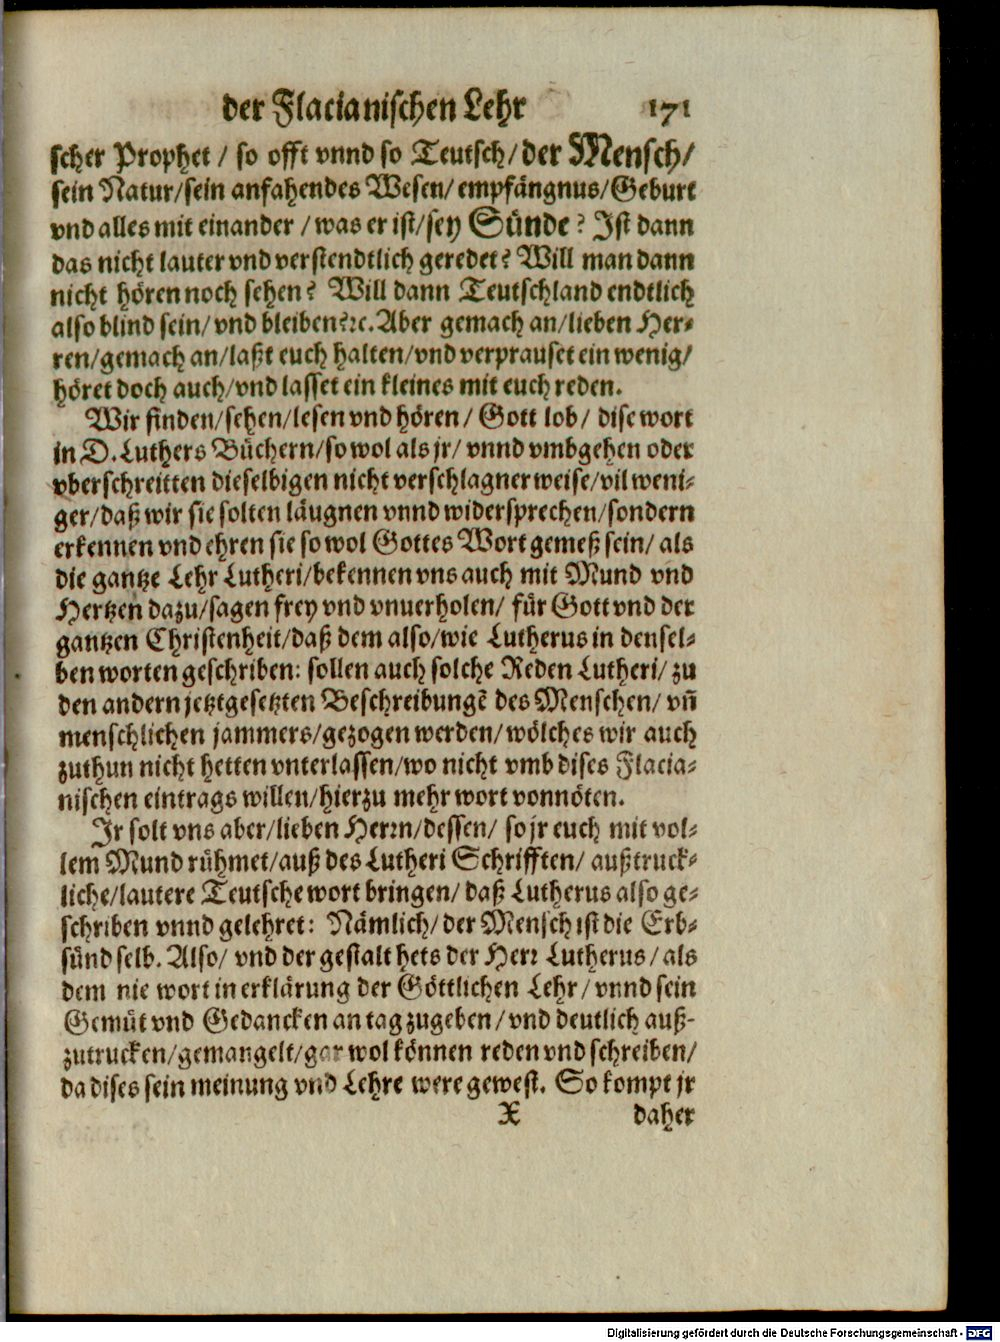 der Flacianischen Lehr 171
scher Prophet / so offt vnnd so Teutsch / der Mensch /
sein Natur / sein anfahendes Wesen / empfängnus / Geburt
vnd alles mit einander / was er ist / sey Sünde? Ist dann
das nicht lauter vnd verstendtlich geredet? Will man dann
nicht hören noch sehen? Will dann Teutschland endtlich
also blind sein / vnd bleiben? ꝛc. Aber gemach an / lieben Her-
ren / gemach an / laßt euch halten / vnd verprauset ein wenig /
höret doch auch / vnd lasset ein kleines mit euch reden.
Wir finden / sehen / lesen vnd hören / Gott lob / dise wort
in D. Luthers Büchern / so wol als jr / vnnd vmbgehen oder
vberschreitten dieselbigen nicht verschlagner weise / vil weni-
ger / daß wir sie solten läugnen vnnd widersprechen / sondern
erkennen vnd ehren sie so wol Gottes Wort gemeß sein / als
die gantze Lehr Lutheri / bekennen vns auch mit Mund vnd
Hertzen dazu / sagen frey vnd vnuerholen / für Gott vnd der
gantzen Christenheit / daß dem also / wie Lutherus in densel-
ben worten geschriben: sollen auch solche Reden Lutheri / zu
den andern jetztgesetzten Beschreibungẽ des Menschen / vñ
menschlichen jammers / gezogen werden / wölches wir auch
zuthun nicht hetten vnterlassen / wo nicht vmb dises Flacia-
nischen eintrags willen / hierzu mehr wort vonnöten.
Ir solt vns aber / lieben Herrn / dessen / so jr euch mit vol-
lem Mund rühmet / auß des Lutheri Schrifften / außtruck-
liche / lautere Teutsche wort bringen / daß Lutherus also ge-
schriben vnnd gelehret: Nämlich / der Mensch ist die Erb-
sünd selb. Also / vnd der gestalt hets der Herr Lutherus / als
dem nie wort in erklärung der Göttlichen Lehr / vnnd sein
Gemüt vnd Gedancken an tag zugeben / vnd deutlich auß-
zutrucken / gemangelt / gar wol können reden vnd schreiben /
da dises sein meinung vnd Lehre were gewest. So kompt jr
X daher
Digitalisierung gefördert durch die Deutsche Forschungsgemeinschaft - DFG